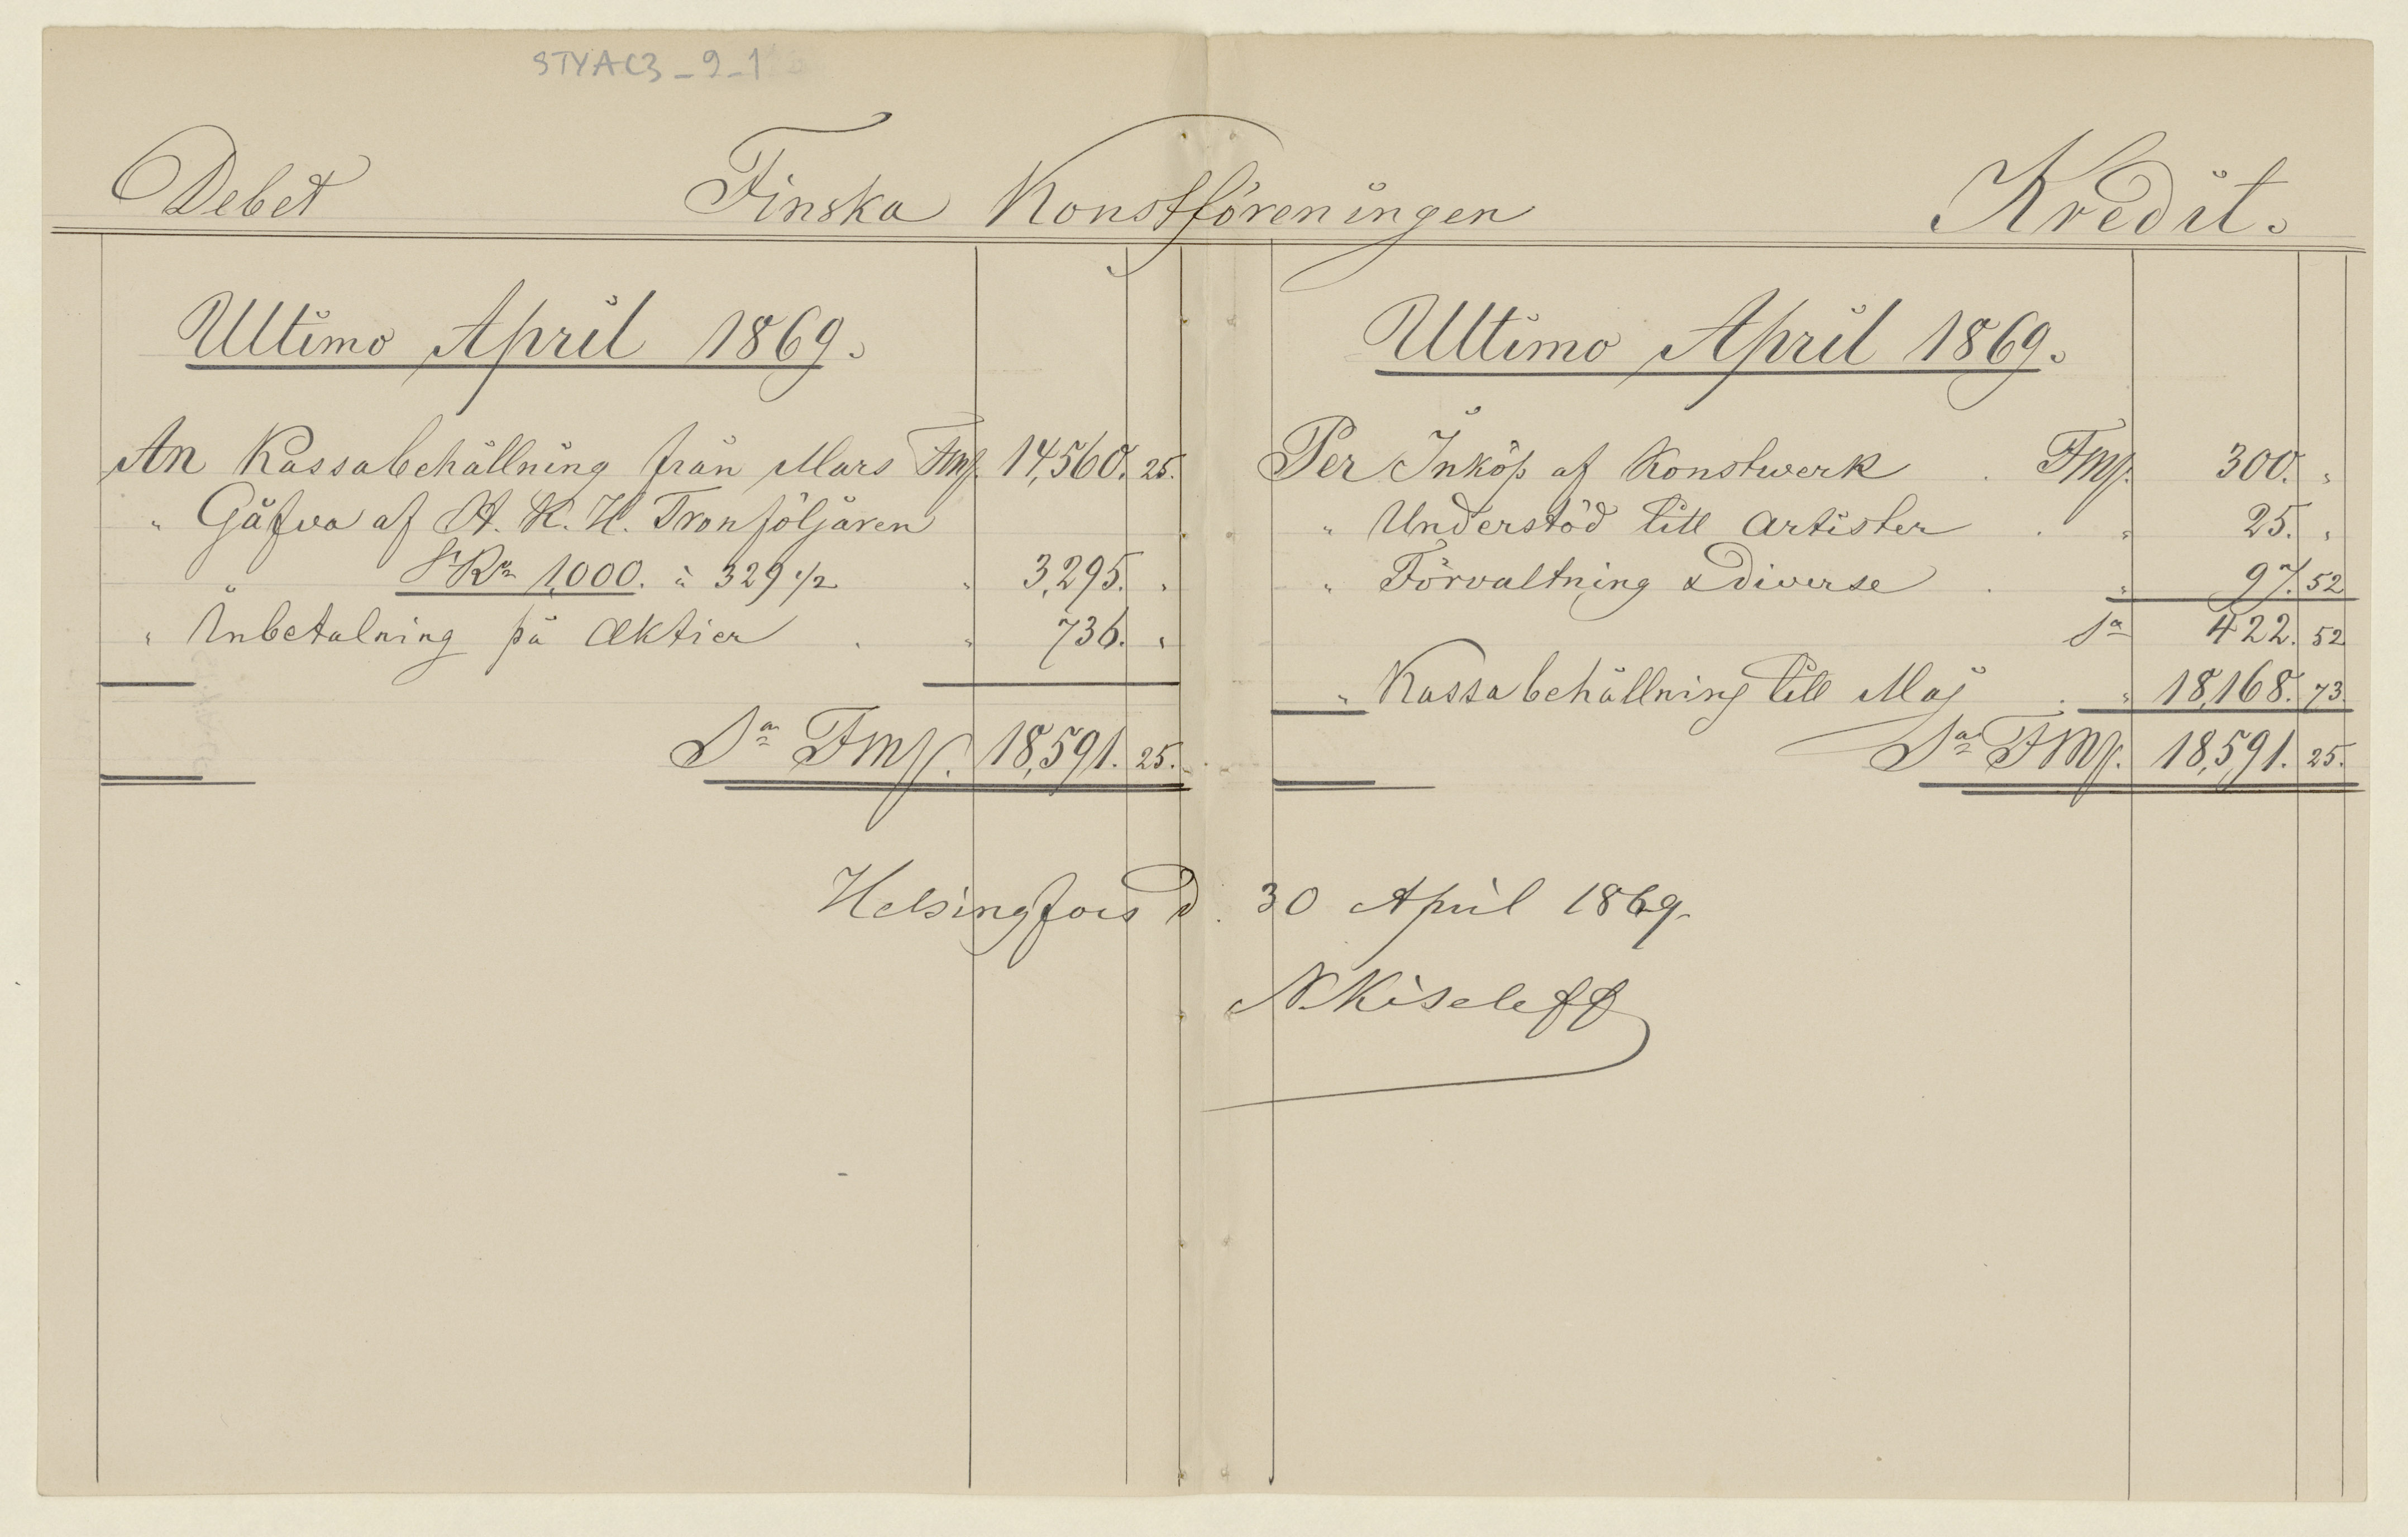 STYAC3_9_1
Debet Finska Konstföreningen Kredit.
Ultimo April 1869.
An Kassabehållning från Mars Fmk. 14,560. 25.
" Gåfva af H. K. H. Tronföljaren
" S Ro 1,000. à 329 1/2 " 3,295. "
" Inbetalning på Aktier . " 736. "
Sa Fmk. 18,591. 25.
Ultimo April 1869.
Per Inköp af Konstwerk . Fmk. 300. "
" Understöd till Artister . " 25. "
" Förvaltning & Diverse . " 97. 52
Sa 422. 52
" Kassabehållning till Maj . " 18,168. 73.
Sa Fmk. 18,591. 25.
Helsingfors d. 30 April 1869.
N. Kiseleff